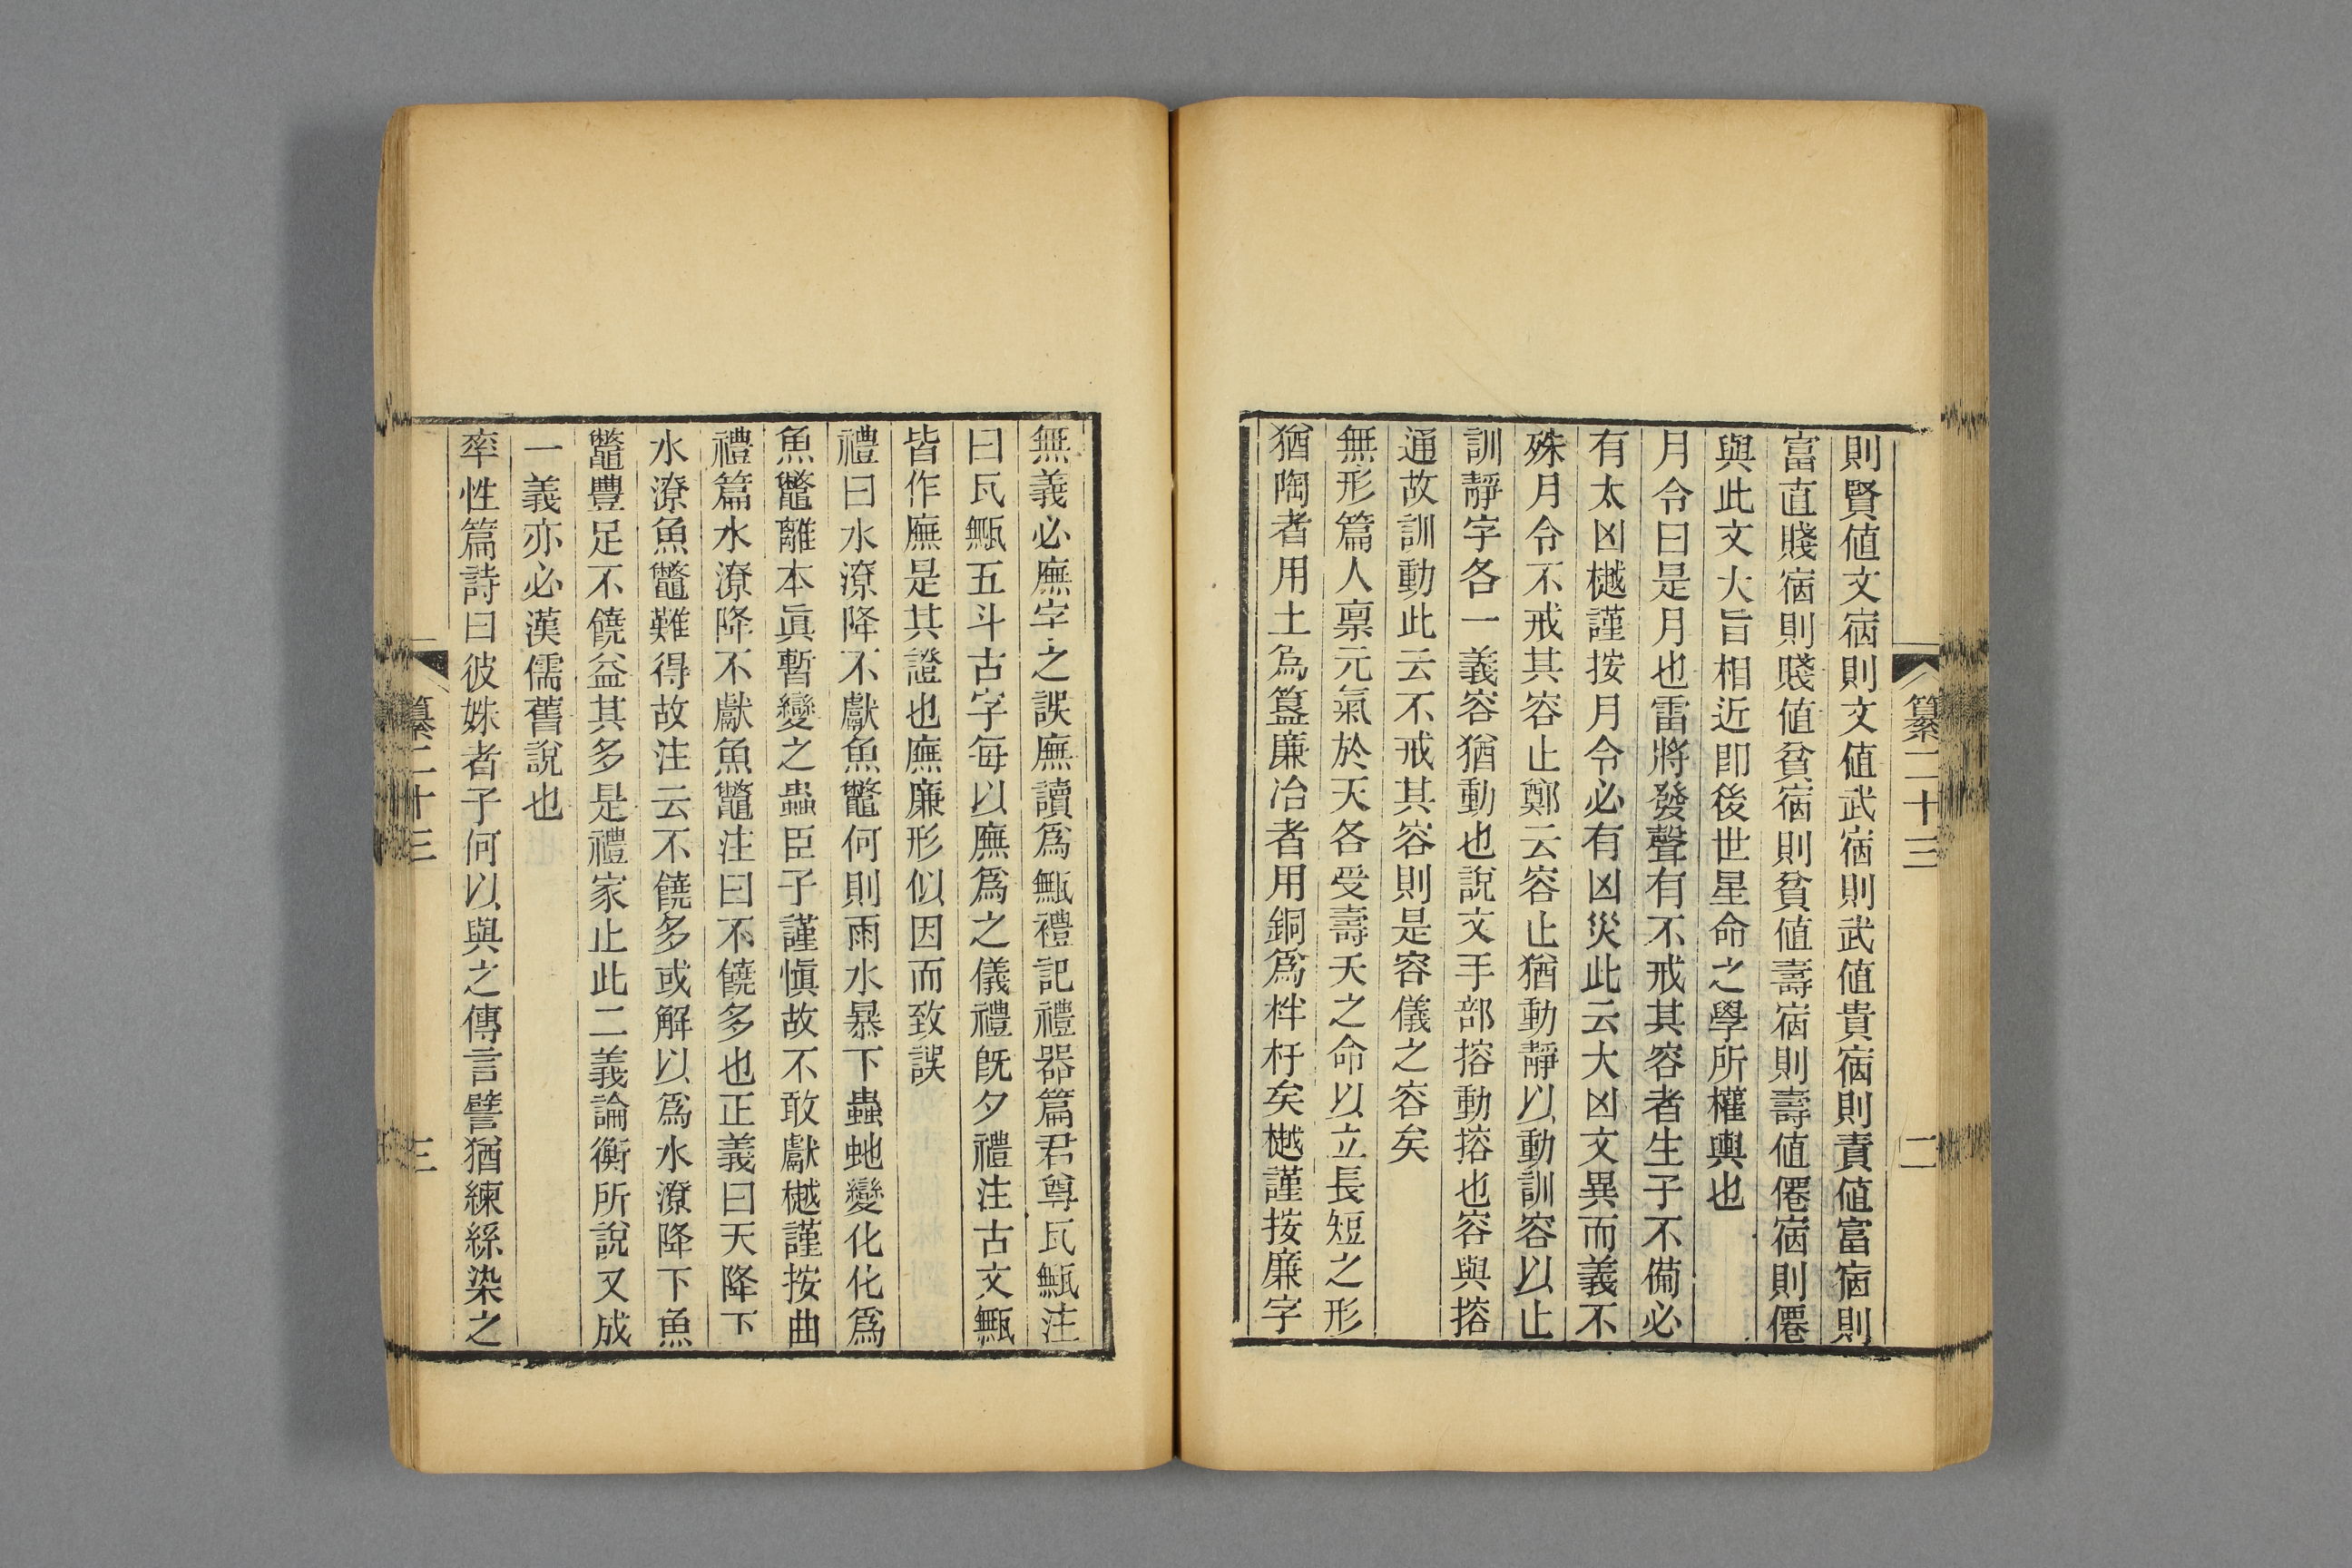 纂二十三
二
則賢値文宿則文値武宿則武値貴宿則責値富宿則
富直賤宿則賤値貧宿則貧値壽宿則壽値僊宿則僊
與此文大旨相近卽後世星命之學所權輿也
月令曰是月也雷將發聲有不戒其容者生子不備必
有太凶樾謹按月令必有凶災此云大凶文異而義不
殊月令不戒其容止鄭云容止猶動靜以動訓容以止
訓靜字各一義容猶動也說文手部搈動搈也容與搈
通故訓動此云不戒其容則是容儀之容矣
無形篇人禀元氣於天各受壽夭之命以立長短之形
猶陶者用土爲簋廉冶者用銅爲柈杅矣樾謹按廉字
無義必廡字之誤廡讀爲甒禮記禮器篇君尊瓦甒注
曰瓦甒五斗古字每以廡爲之儀禮旣夕禮注古文甒
皆作廡是其證也廡廉形似因而致誤
禮曰水潦降不獻魚鼈何則雨水暴下蟲虵變化化爲
魚鼈離本眞暫變之蟲臣子謹愼故不敢獻樾謹按曲
禮篇水潦降不獻魚鼈注曰不饒多也正義曰天降下
水潦魚鼈難得故注云不饒多或解以爲水潦降下魚
鼈豐足不饒益其多是禮家止此二義論衡所說又成
一義亦必漢儒舊說也
率性篇詩曰彼姝者子何以與之傳言譬猶練絲染之
纂二十三
三